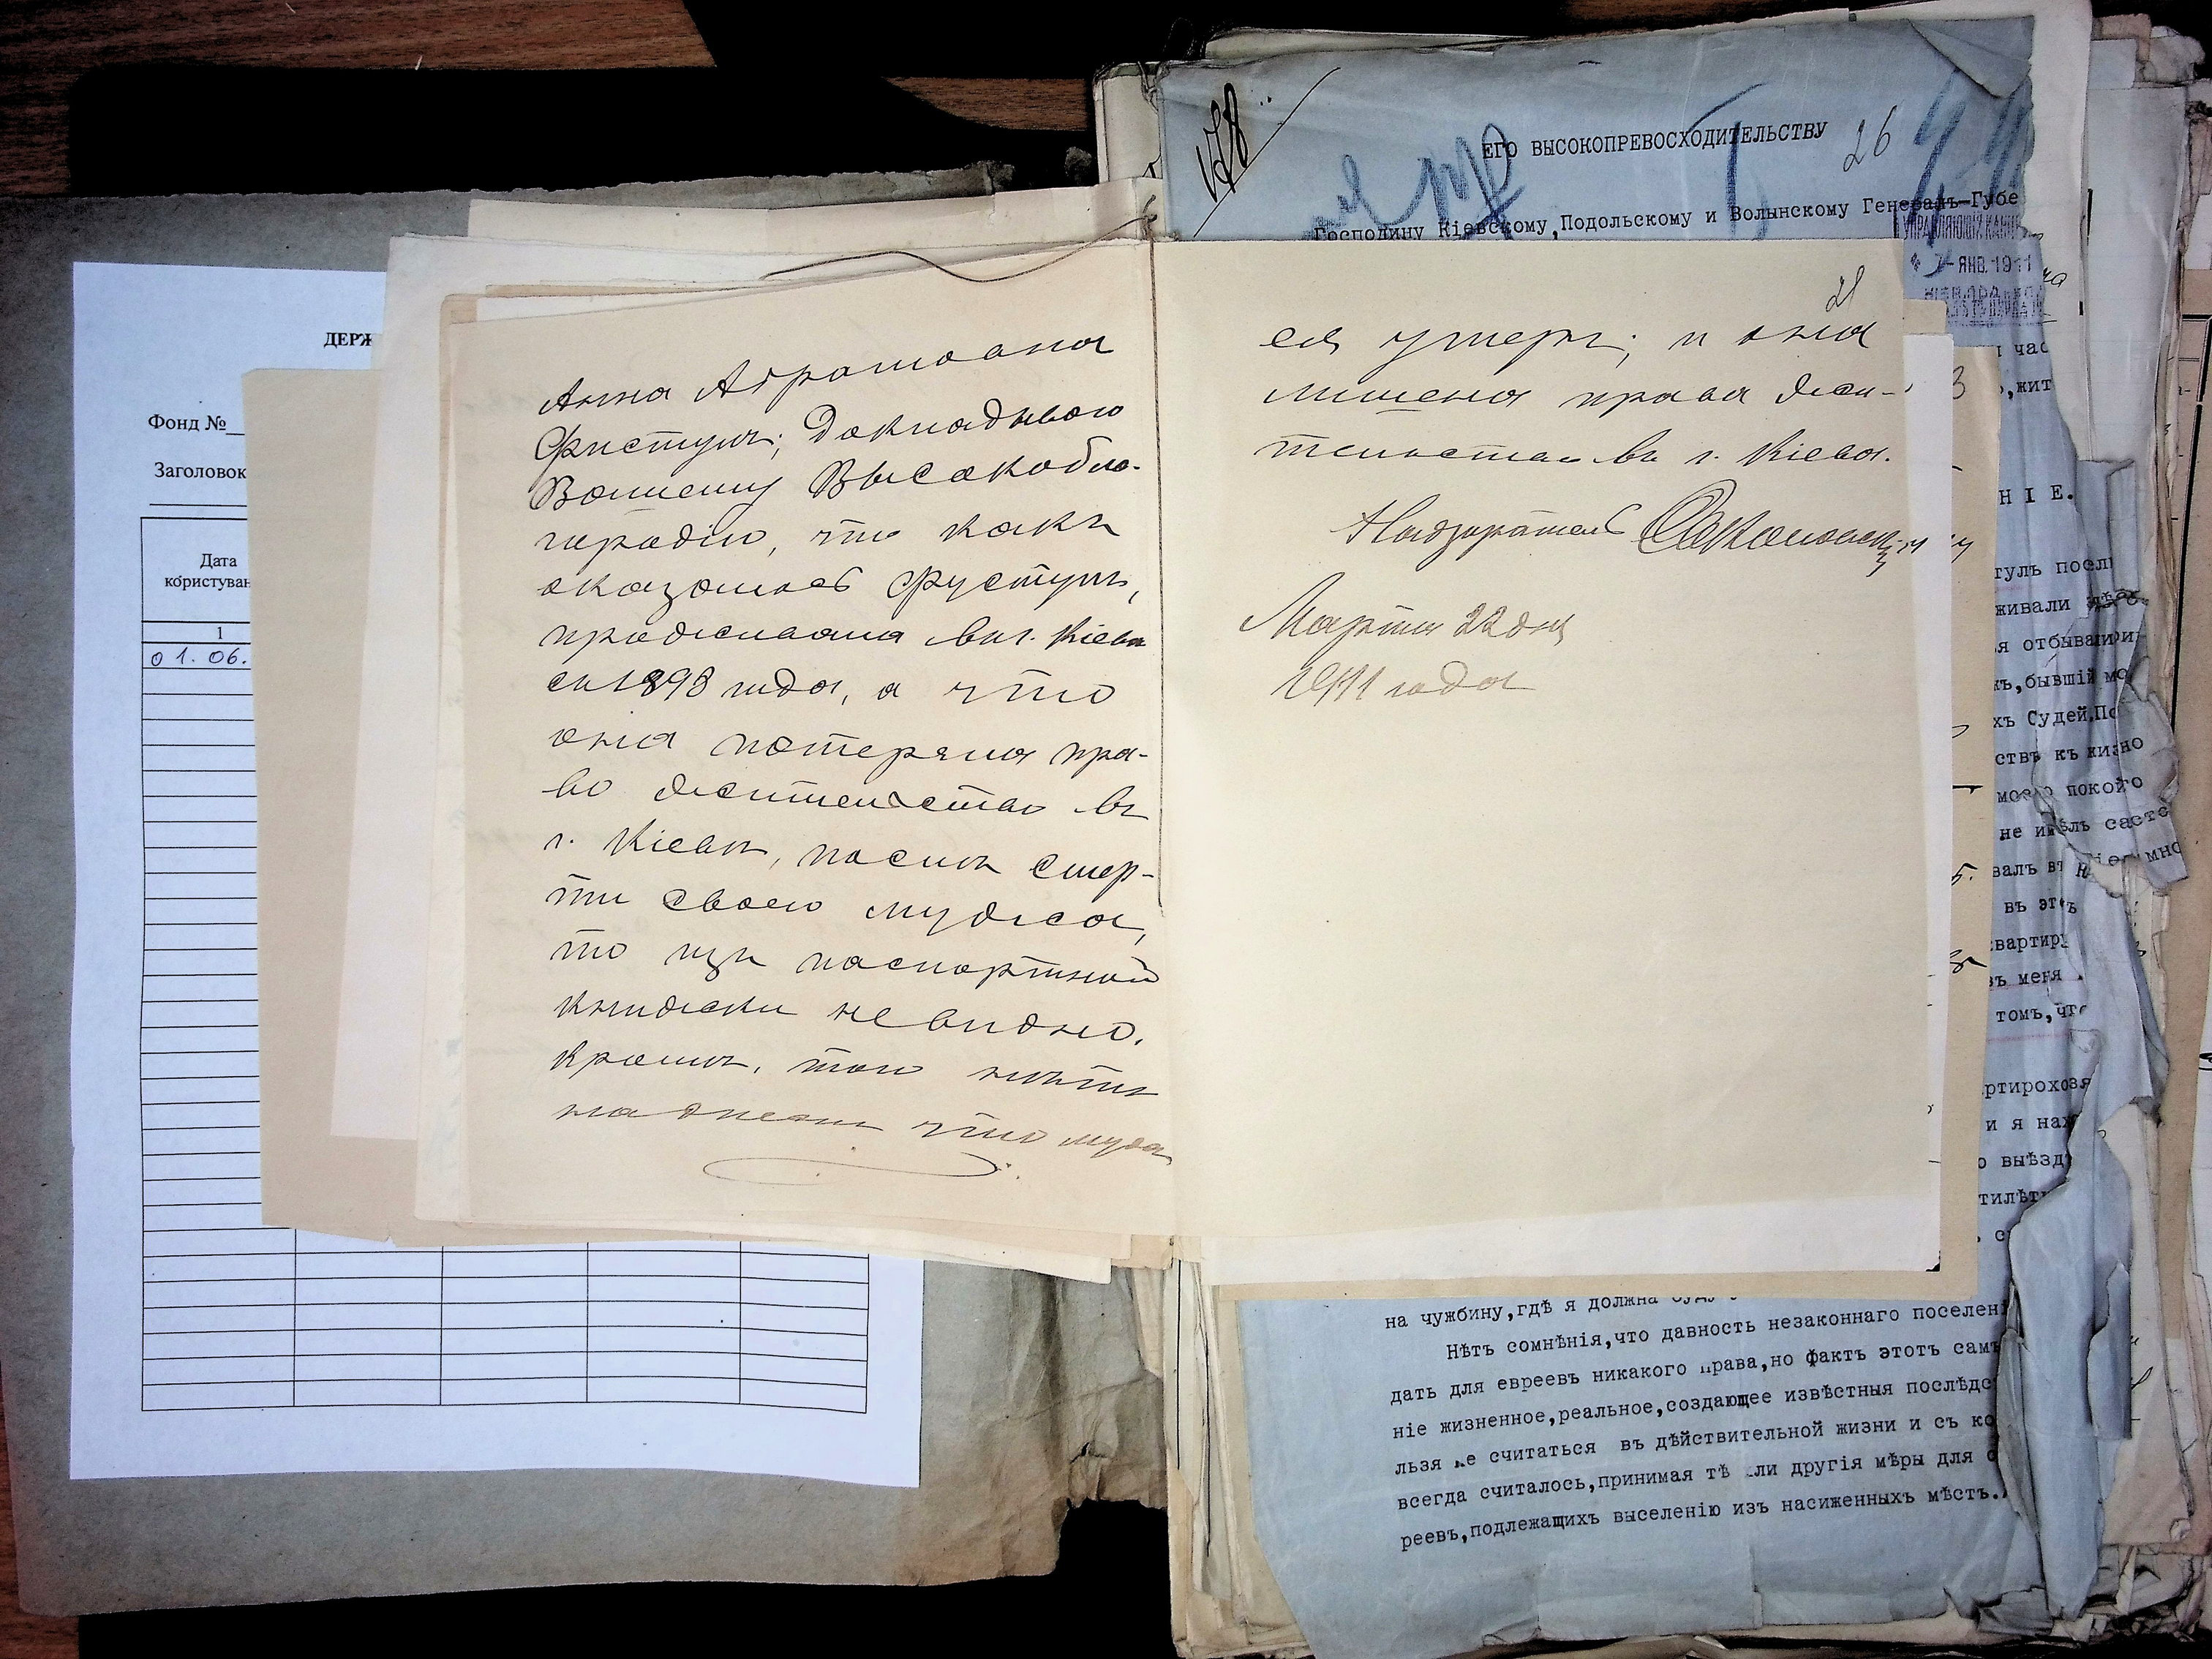 ДЕРЖ
Фонд №
Заголовок
Дата
користуван
1
01. 06.
Анна Абрамовна
Фистулъ; Докладываю
Вашему Высокобла-
городію, что какъ
оказалось Фустулъ,
проживала въ г. Кіевѣ
съ 1898 года, а что
она потеряла пра-
во жительства въ
г. Кіевѣ, послѣ смер-
ти своего мужа,
то изъ паспортной
книжки не видно.
Кромѣ, того нѣтъ
надписи что мужъ
28
ея умеръ; и она
лишена права жи-
тельства въ г. Кіевѣ.
Надзиратель
Марта 22 дня
1911 года
ЕГО ВЫСОКОПРЕВОСХОДИТЕЛЬСТВУ
26
Господину Кіевскому,Подольскому и Волынскому Генералъ-Губе
УПРАВЛЯЮЩІЙ КАНЦ
7-ЯНВ.1911
час
,жит
НІЕ.
тулъ посл
живали
я отбывали
ъ,бывшій мо
хъ Судей.По
ствъ къ жизно
моего покойо
не имѣлъ састо
валъ въ
въ этъ
квартиру
въ меня
томъ,что
ртирохозя
и я нах
о выѣзд
тилѣт
на чужбину,гдѣ я должна буду
Нѣтъ сомнѣнія,что давность незаконнаго поселені
дать для евреевъ никакого права,но фактъ этотъ самъ
ніе жизненное,реальное,создающее извѣстныя послѣдс
льзя не считаться въ дѣйствительной жизни и съ ко
всегда считалось,принимая тѣ или другія мѣры для
реевъ,подлежащихъ выселенію изъ насиженныхъ мѣстъ.